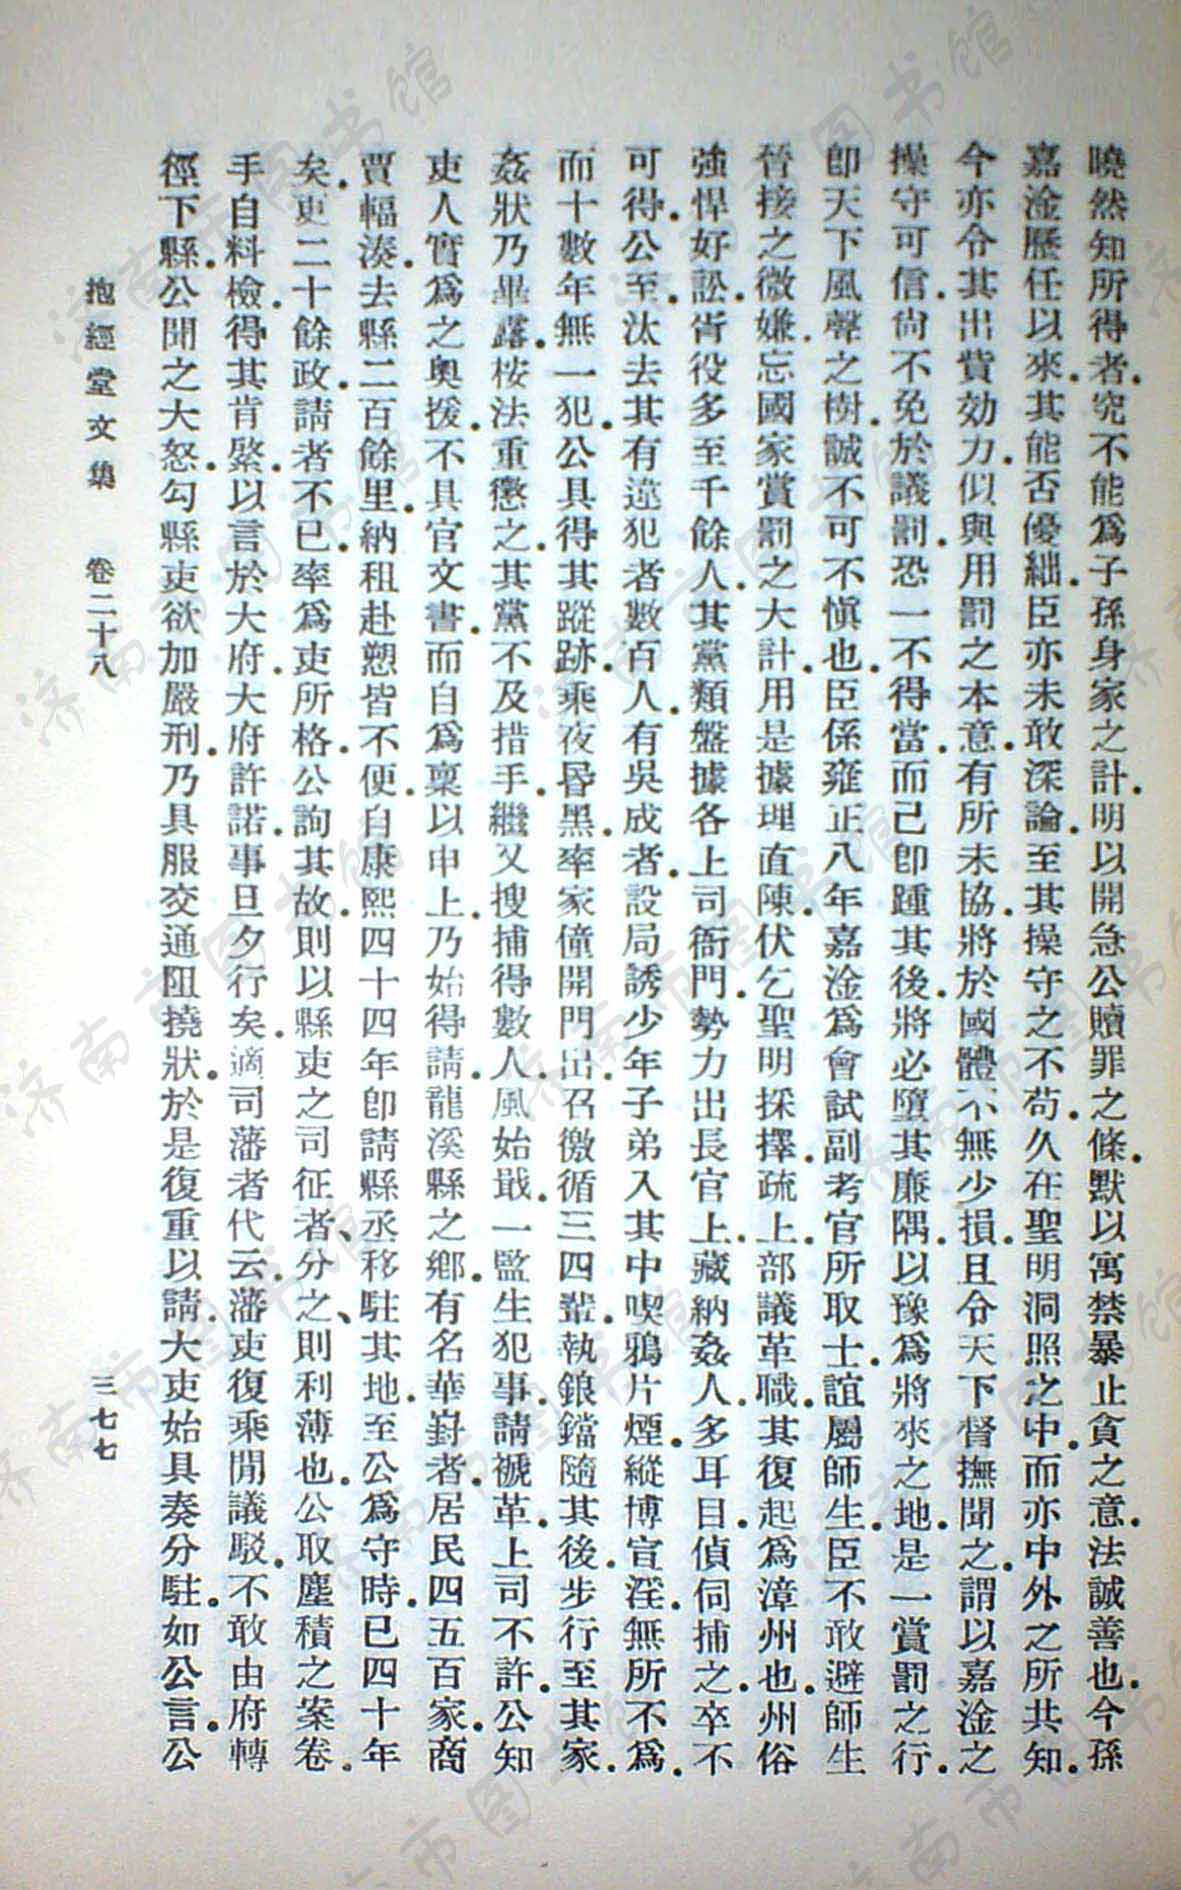 曉然知所得者.究不能爲子孫身家之計.明以開急公贖罪之條.默以寓禁暴止貪之意.法誠善也.今孫
嘉淦歷任以來.其能否優絀.臣亦未敢深論.至其操守之不苟.久在聖明洞照之中.而亦中外之所共知.
今亦令其出貲効力.似與用罰之本意.有所未協.將於國體不無少損.且令天下督撫聞之.謂以嘉淦之
操守可信.尙不免於議罰.恐一不得當.而己卽踵其後.將必墮其廉隅.以豫爲將來之地.是一賞罰之行.
卽天下風聲之樹.誠不可不愼也.臣係雍正八年嘉淦爲會試副考官所取士.誼屬師生.臣不敢避師生
晉接之微嫌.忘國家賞罰之大計.用是據理直陳.伏乞聖明採擇.疏上.部議革職.其復起爲漳州也.州俗
強悍好訟.胥役多至千餘人.其黨類盤據各上司衙門.勢力出長官上.藏納姦人.多耳目.偵伺捕之.卒不
可得.公至.汰去其有違犯者數百人.有吳成者.設局誘少年子弟入其中喫鴉片煙.縱博宣淫.無所不爲.
而十數年無一犯.公具得其蹤跡.乘夜昏黑.率家僮開門出.召徼循三四輩.執鋃鐺隨其後.步行至其家.
姦狀乃畢露.桉法重懲之.其黨不及措手.繼又搜捕得數人.風始戢.一監生犯事.請褫革.上司不許.公知
吏人實爲之奧援.不具官文書.而自爲稟以申上.乃始得請.龍溪縣之鄉.有名華崶者.居民四五百家.商
賈輻湊.去縣二百餘里.納租赴愬皆不便.自康熙四十四年卽請縣丞移駐其地.至公爲守時.已四十年
矣.更二十餘政.請者不已.率爲吏所格.公詢其故.則以縣吏之司征者、分之、則利薄也.公取塵積之案卷.
手自料檢.得其肯綮.以言於大府.大府許諾.事旦夕行矣.適司藩者代云.藩吏復乘閒議駁.不敢由府轉
徑下縣.公聞之大怒.勾縣吏欲加嚴刑.乃具服交通阻撓狀.於是復重以請.大吏始具奏分駐.如公言.公
抱經堂文集 卷二十八 三七七
济南市图书馆